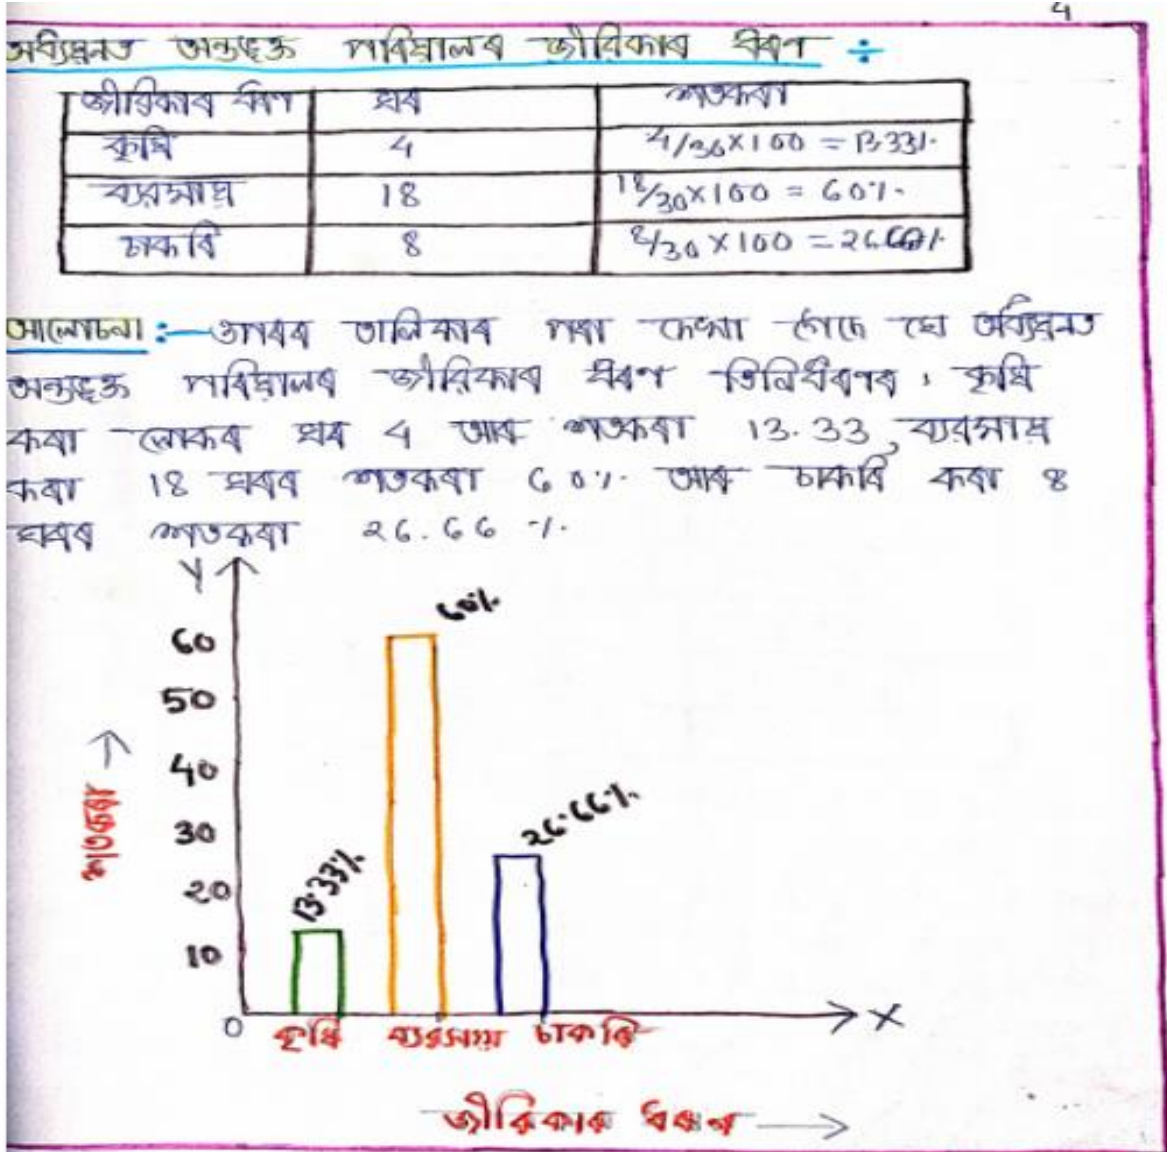 4
অধ্যয়নত অন্তৰ্ভুক্ত পৰিয়ালৰ জীৱিকাৰ ধৰণ ÷
জীৱিকাৰ ধৰণ ঘৰ শতকৰা
কৃষি 4 4/30×100 = 13.33%
ব্যৱসায় 18 18/30×100 = 60%
চাকৰি 8 8/30×100 = 26.66%
আলোচনা :— ওপৰৰ তালিকাৰ পৰা দেখা গৈছে যে অধ্যয়নত
অন্তৰ্ভুক্ত পৰিয়ালৰ জীৱিকাৰ ধৰণ তিনিধৰণৰ, কৃষি
কৰা লোকৰ ঘৰ 4 আৰু শতকৰা 13.33, ব্যৱসায়
কৰা 18 ঘৰৰ শতকৰা 60% আৰু চাকৰি কৰা 8
ঘৰৰ শতকৰা 26.66 %.
Y
60%
60
50
40
30
20
10
0
শতকৰা →
13.33%
26.66%
X
কৃষি ব্যৱসায় চাকৰি
জীৱিকাৰ ধৰণ →